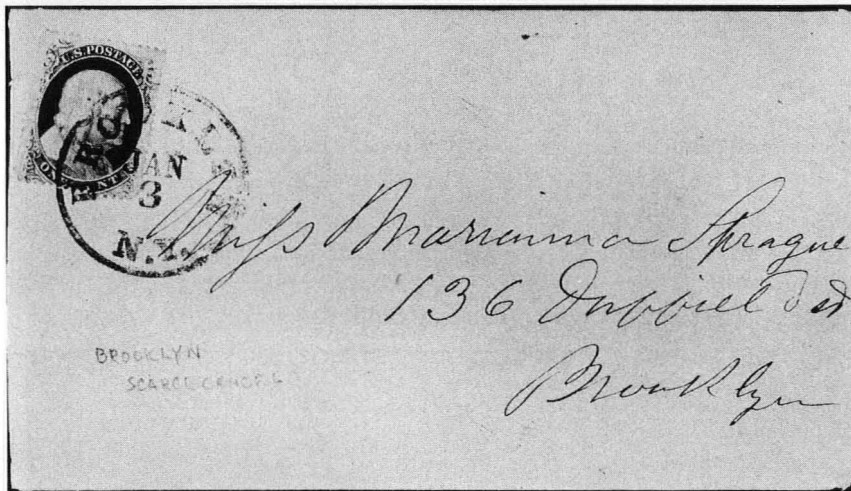 U.S. POSTAGE
ONE CENT
BROOKLYN
JAN
3
N.Y.
Miss Marianna Sprague
136 Duffield St
Brooklyn
BROOKLYN
SCARCE CANCEL